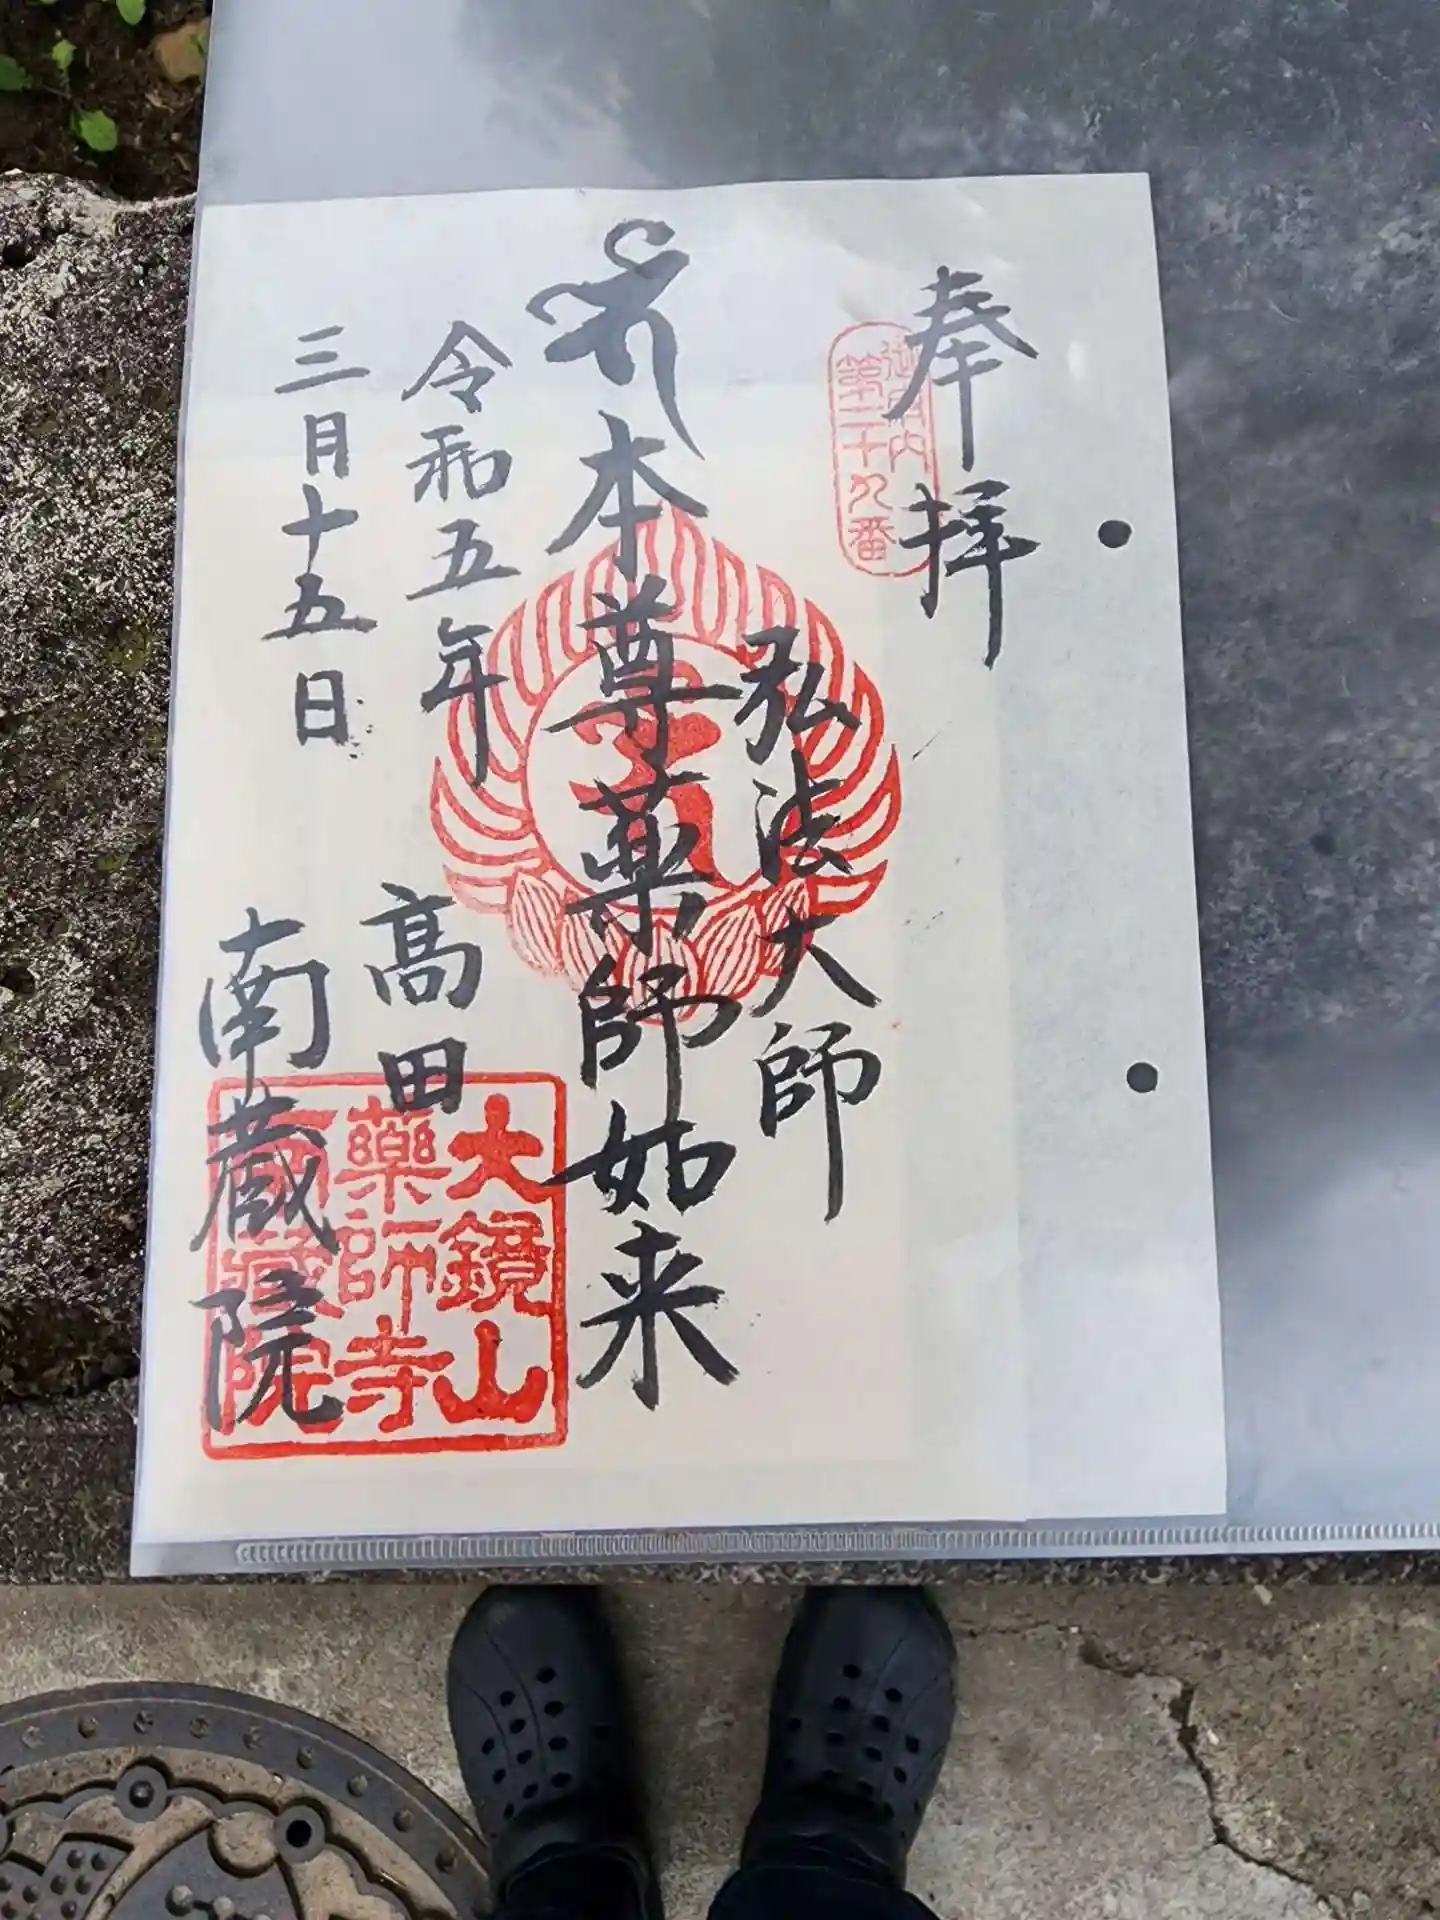 奉拝
御府内
第二十九番
弘法大師
本尊薬師如来
令和五年
三月十五日
高田
南蔵院
大鏡山
藥師寺
南藏院